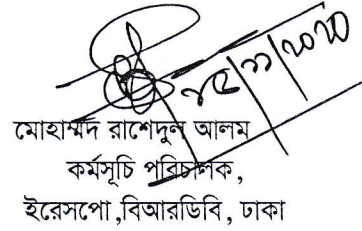 ২৫/১১/২০২০
মোহাম্মদ রাশেদুল আলম
কর্মসূচি পরিচালক,
ইরেসপো ,বিআরডিবি , ঢাকা